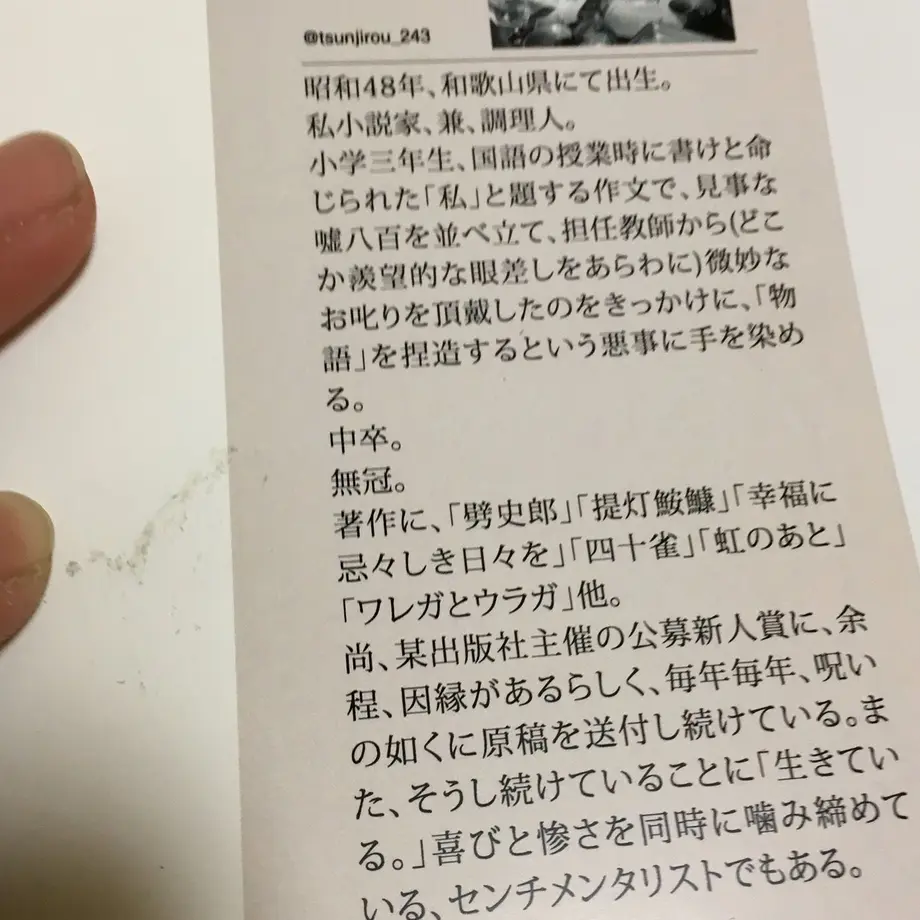 @tsunjirou_243
昭和48年、和歌山県にて出生。
私小説家、兼、調理人。
小学三年生、国語の授業時に書けと命
じられた「私」と題する作文で、見事な
嘘八百を並べ立て、担任教師から(どこ
か羨望的な眼差しをあらわに)微妙な
お叱りを頂戴したのをきっかけに、「物
語」を捏造するという悪事に手を染め
る。
中卒。
無冠。
著作に、「劈史郎」「提灯鮟鱇」「幸福に
忌々しき日々を」「四十雀」「虹のあと」
「ワレガとウラガ」他。
尚、某出版社主催の公募新人賞に、余
程、因縁があるらしく、毎年毎年、呪い
の如くに原稿を送付し続けている。ま
た、そうし続けていることに「生きてい
る。」喜びと惨さを同時に噛み締めて
いる、センチメンタリストでもある。